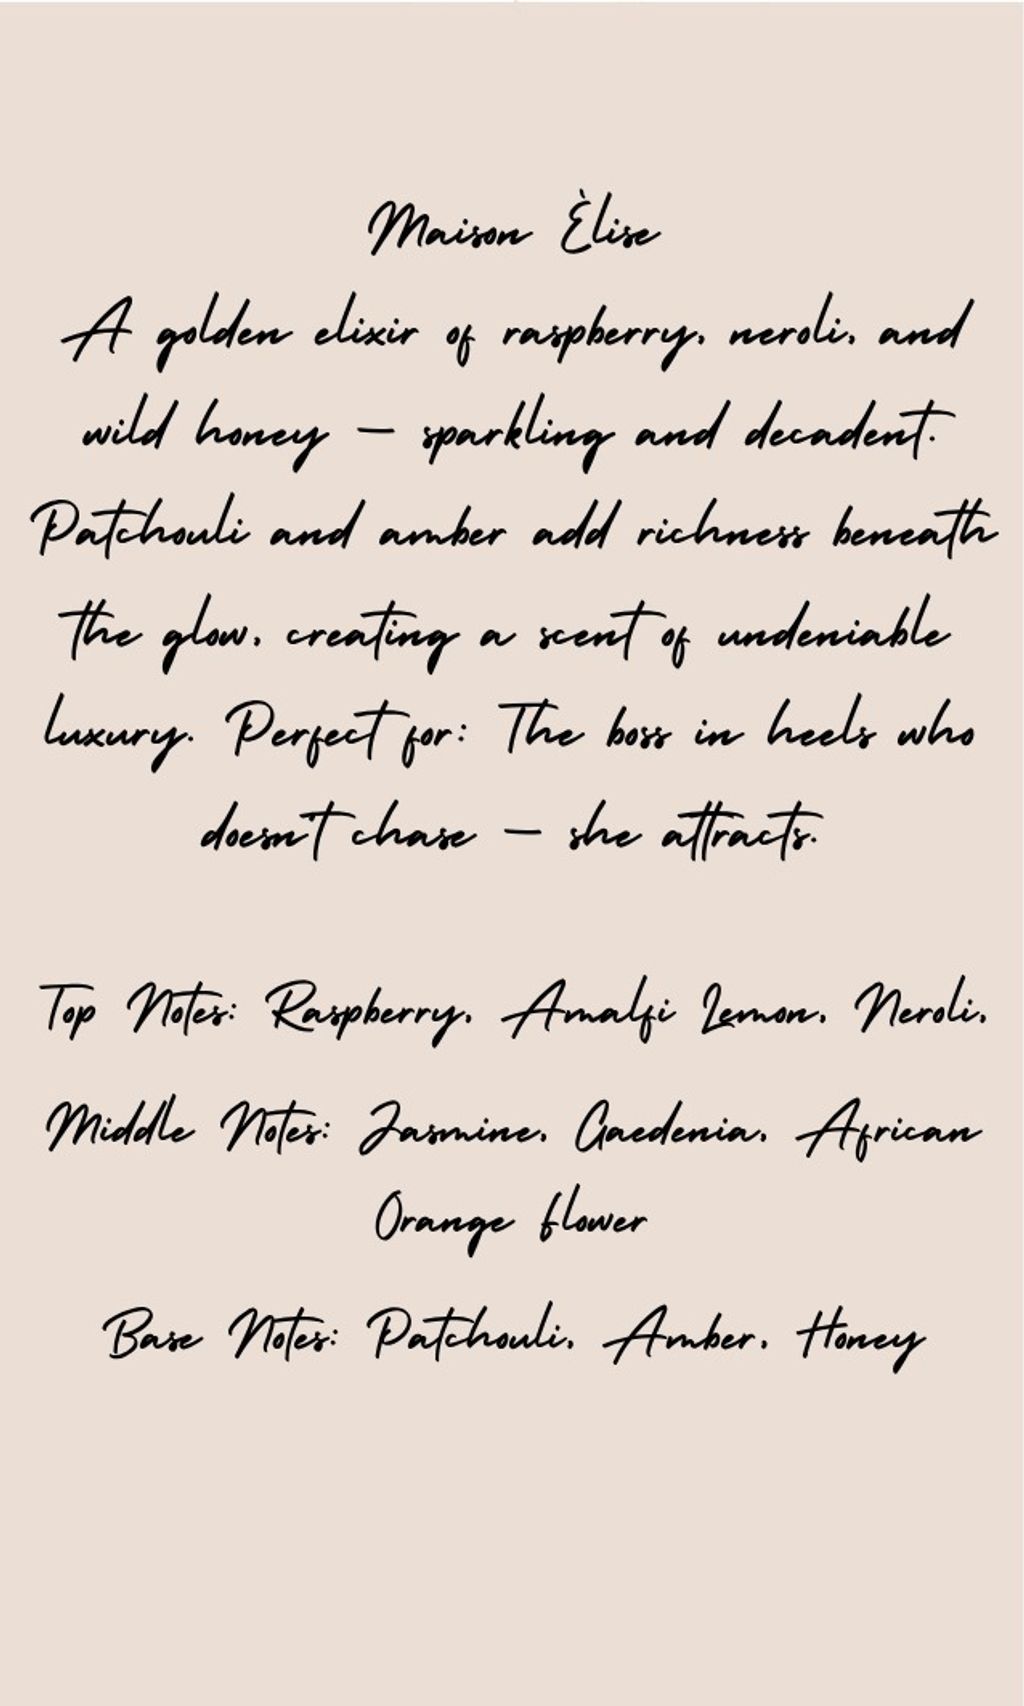 Maison Èlise
A golden elixir of raspberry, neroli, and
wild honey — sparkling and decadent.
Patchouli and amber add richness beneath
the glow, creating a scent of undeniable
luxury. Perfect for: The boss in heels who
doesn't chase — she attracts.
Top Notes: Raspberry, Amalfi Lemon, Neroli,
Middle Notes: Jasmine, Gaedenia, African
Orange flower
Base Notes: Patchouli, Amber, Honey